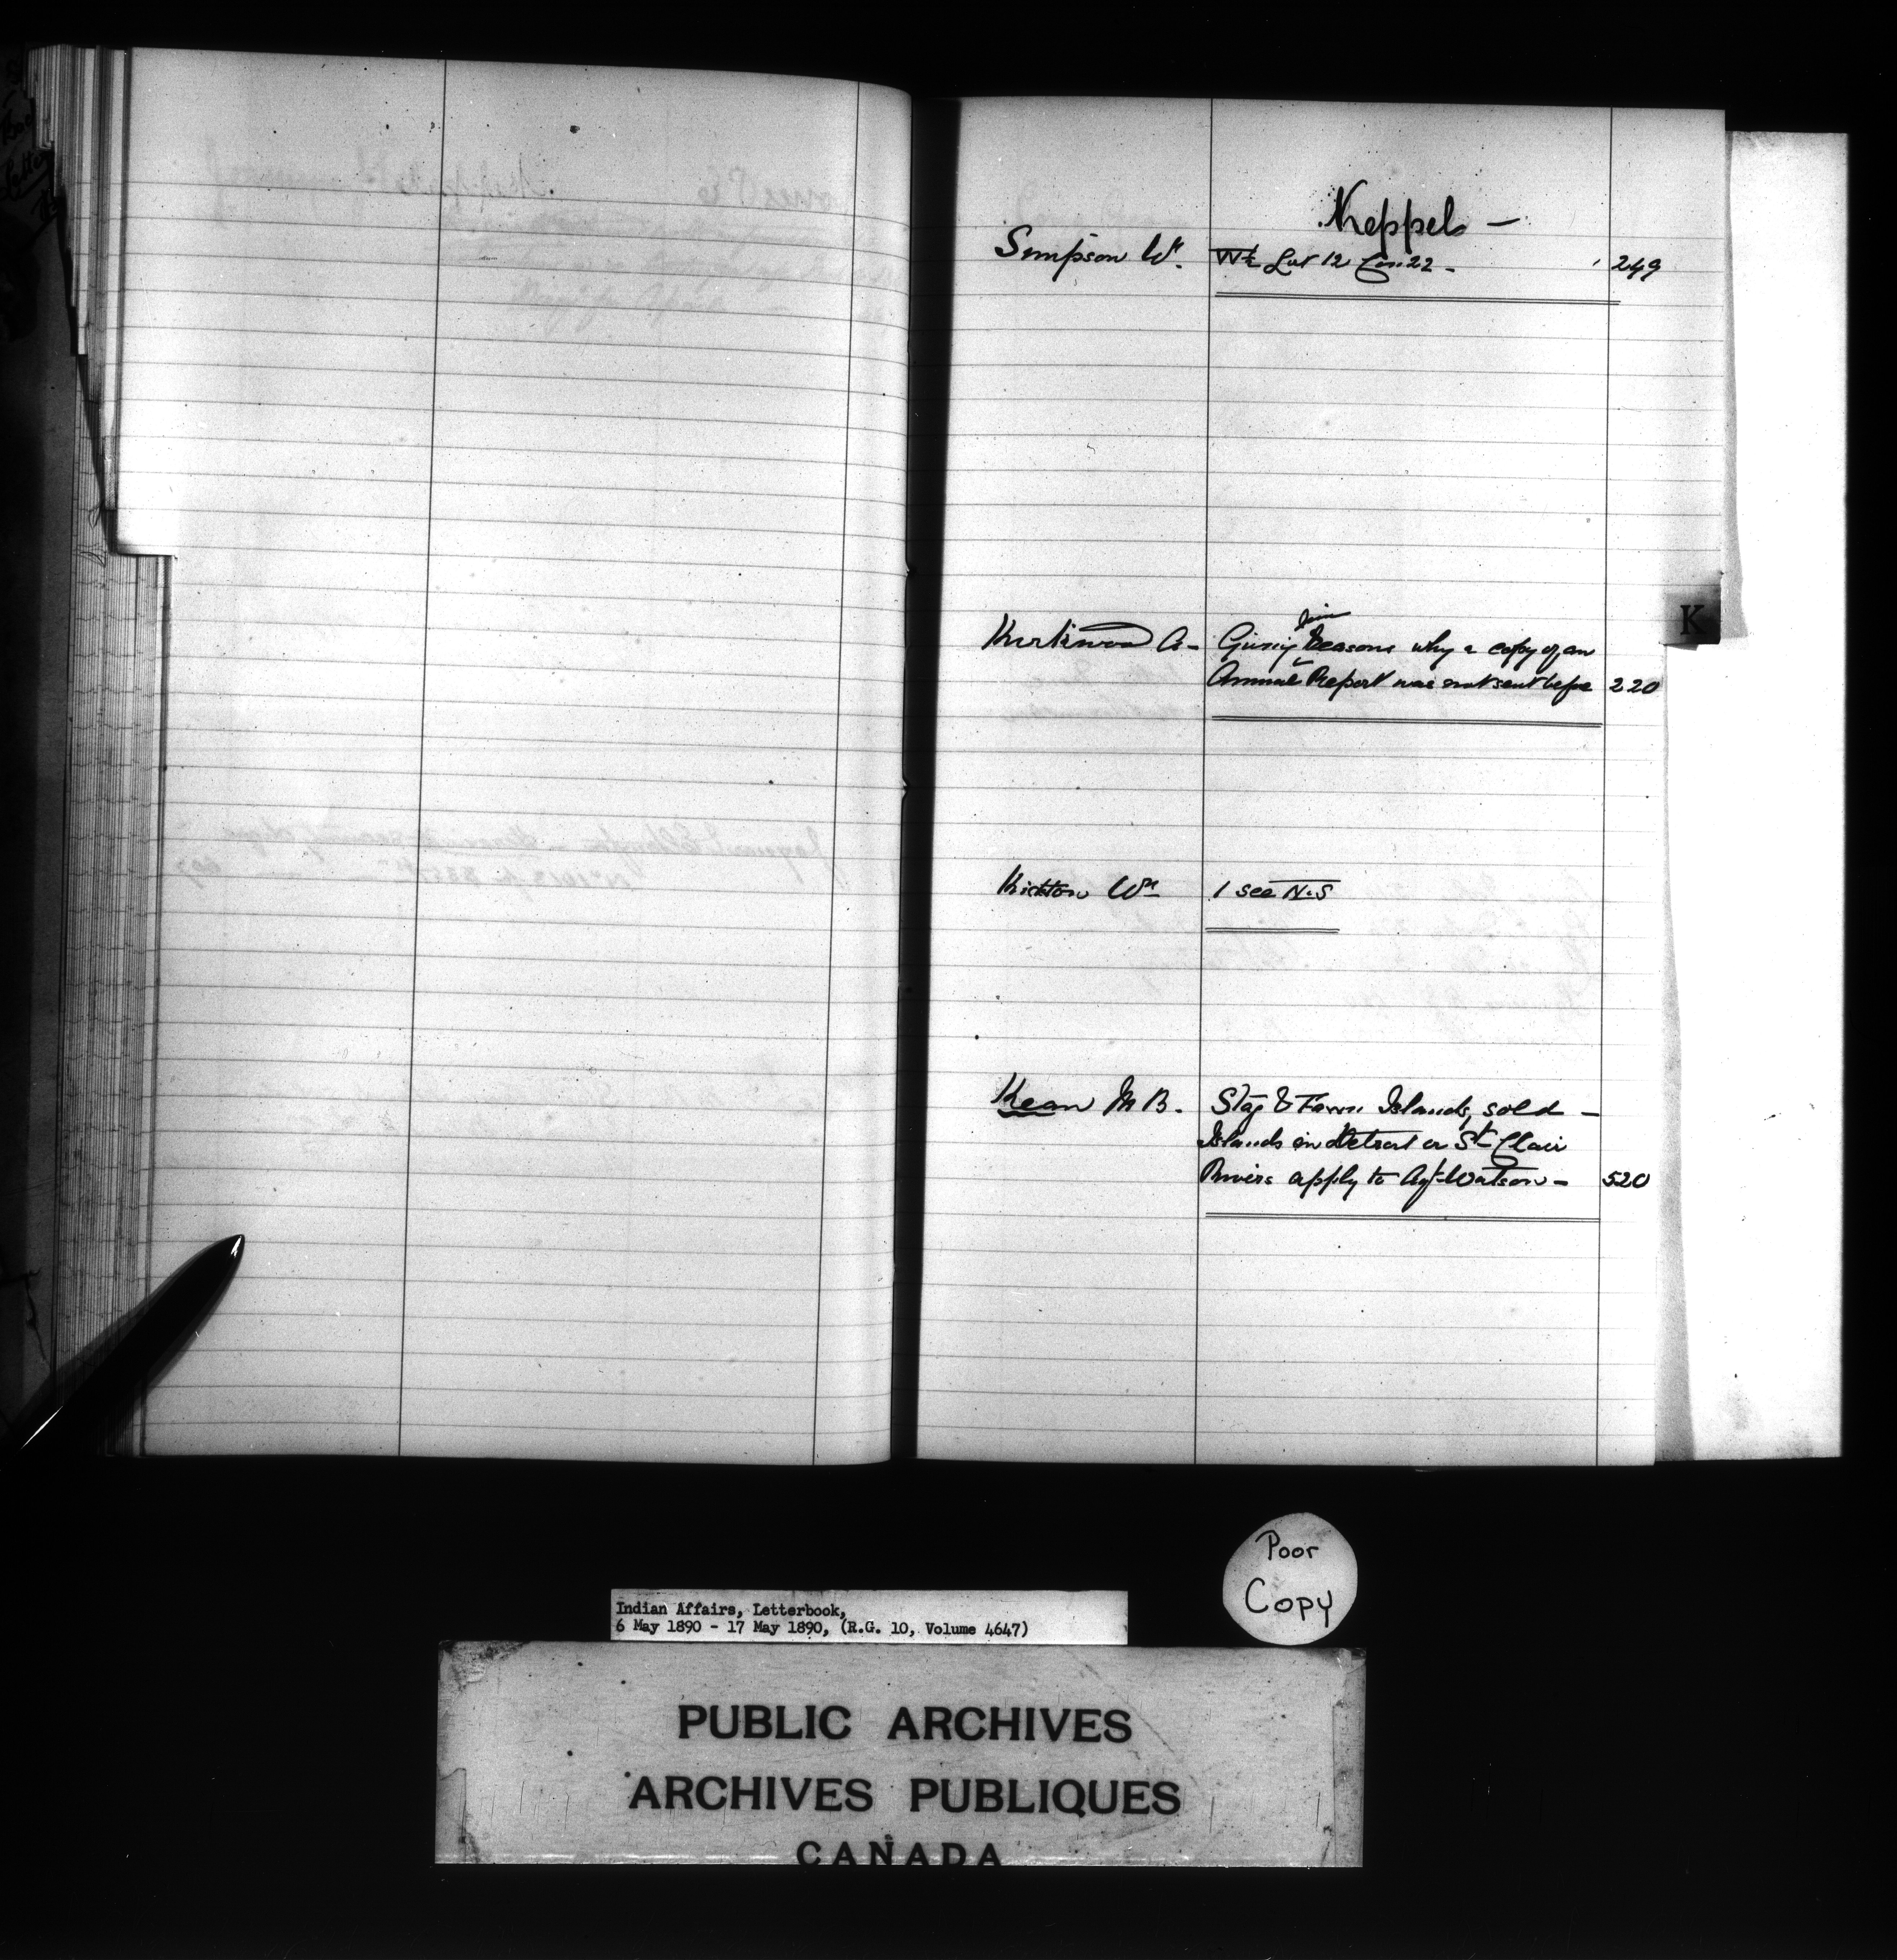 Keppel —
Simpson Wm. W½ Lot 12 Con 22 - 249
him
Kirkwood A - Giving reasons why a copy of an
Annual Report was not sent before 220
K
Kickton Wm 1 see N.S
Kean M B. Stag & Fawn Islands, sold —
Islands in Detroit or St Clair
Rivers apply to Agt Watson — 520
Poor
Copy
Indian Affairs, Letterbook,
6 May 1890 - 17 May 1890, (R.G. 10, Volume 4647)
PUBLIC ARCHIVES
ARCHIVES PUBLIQUES
CANADA